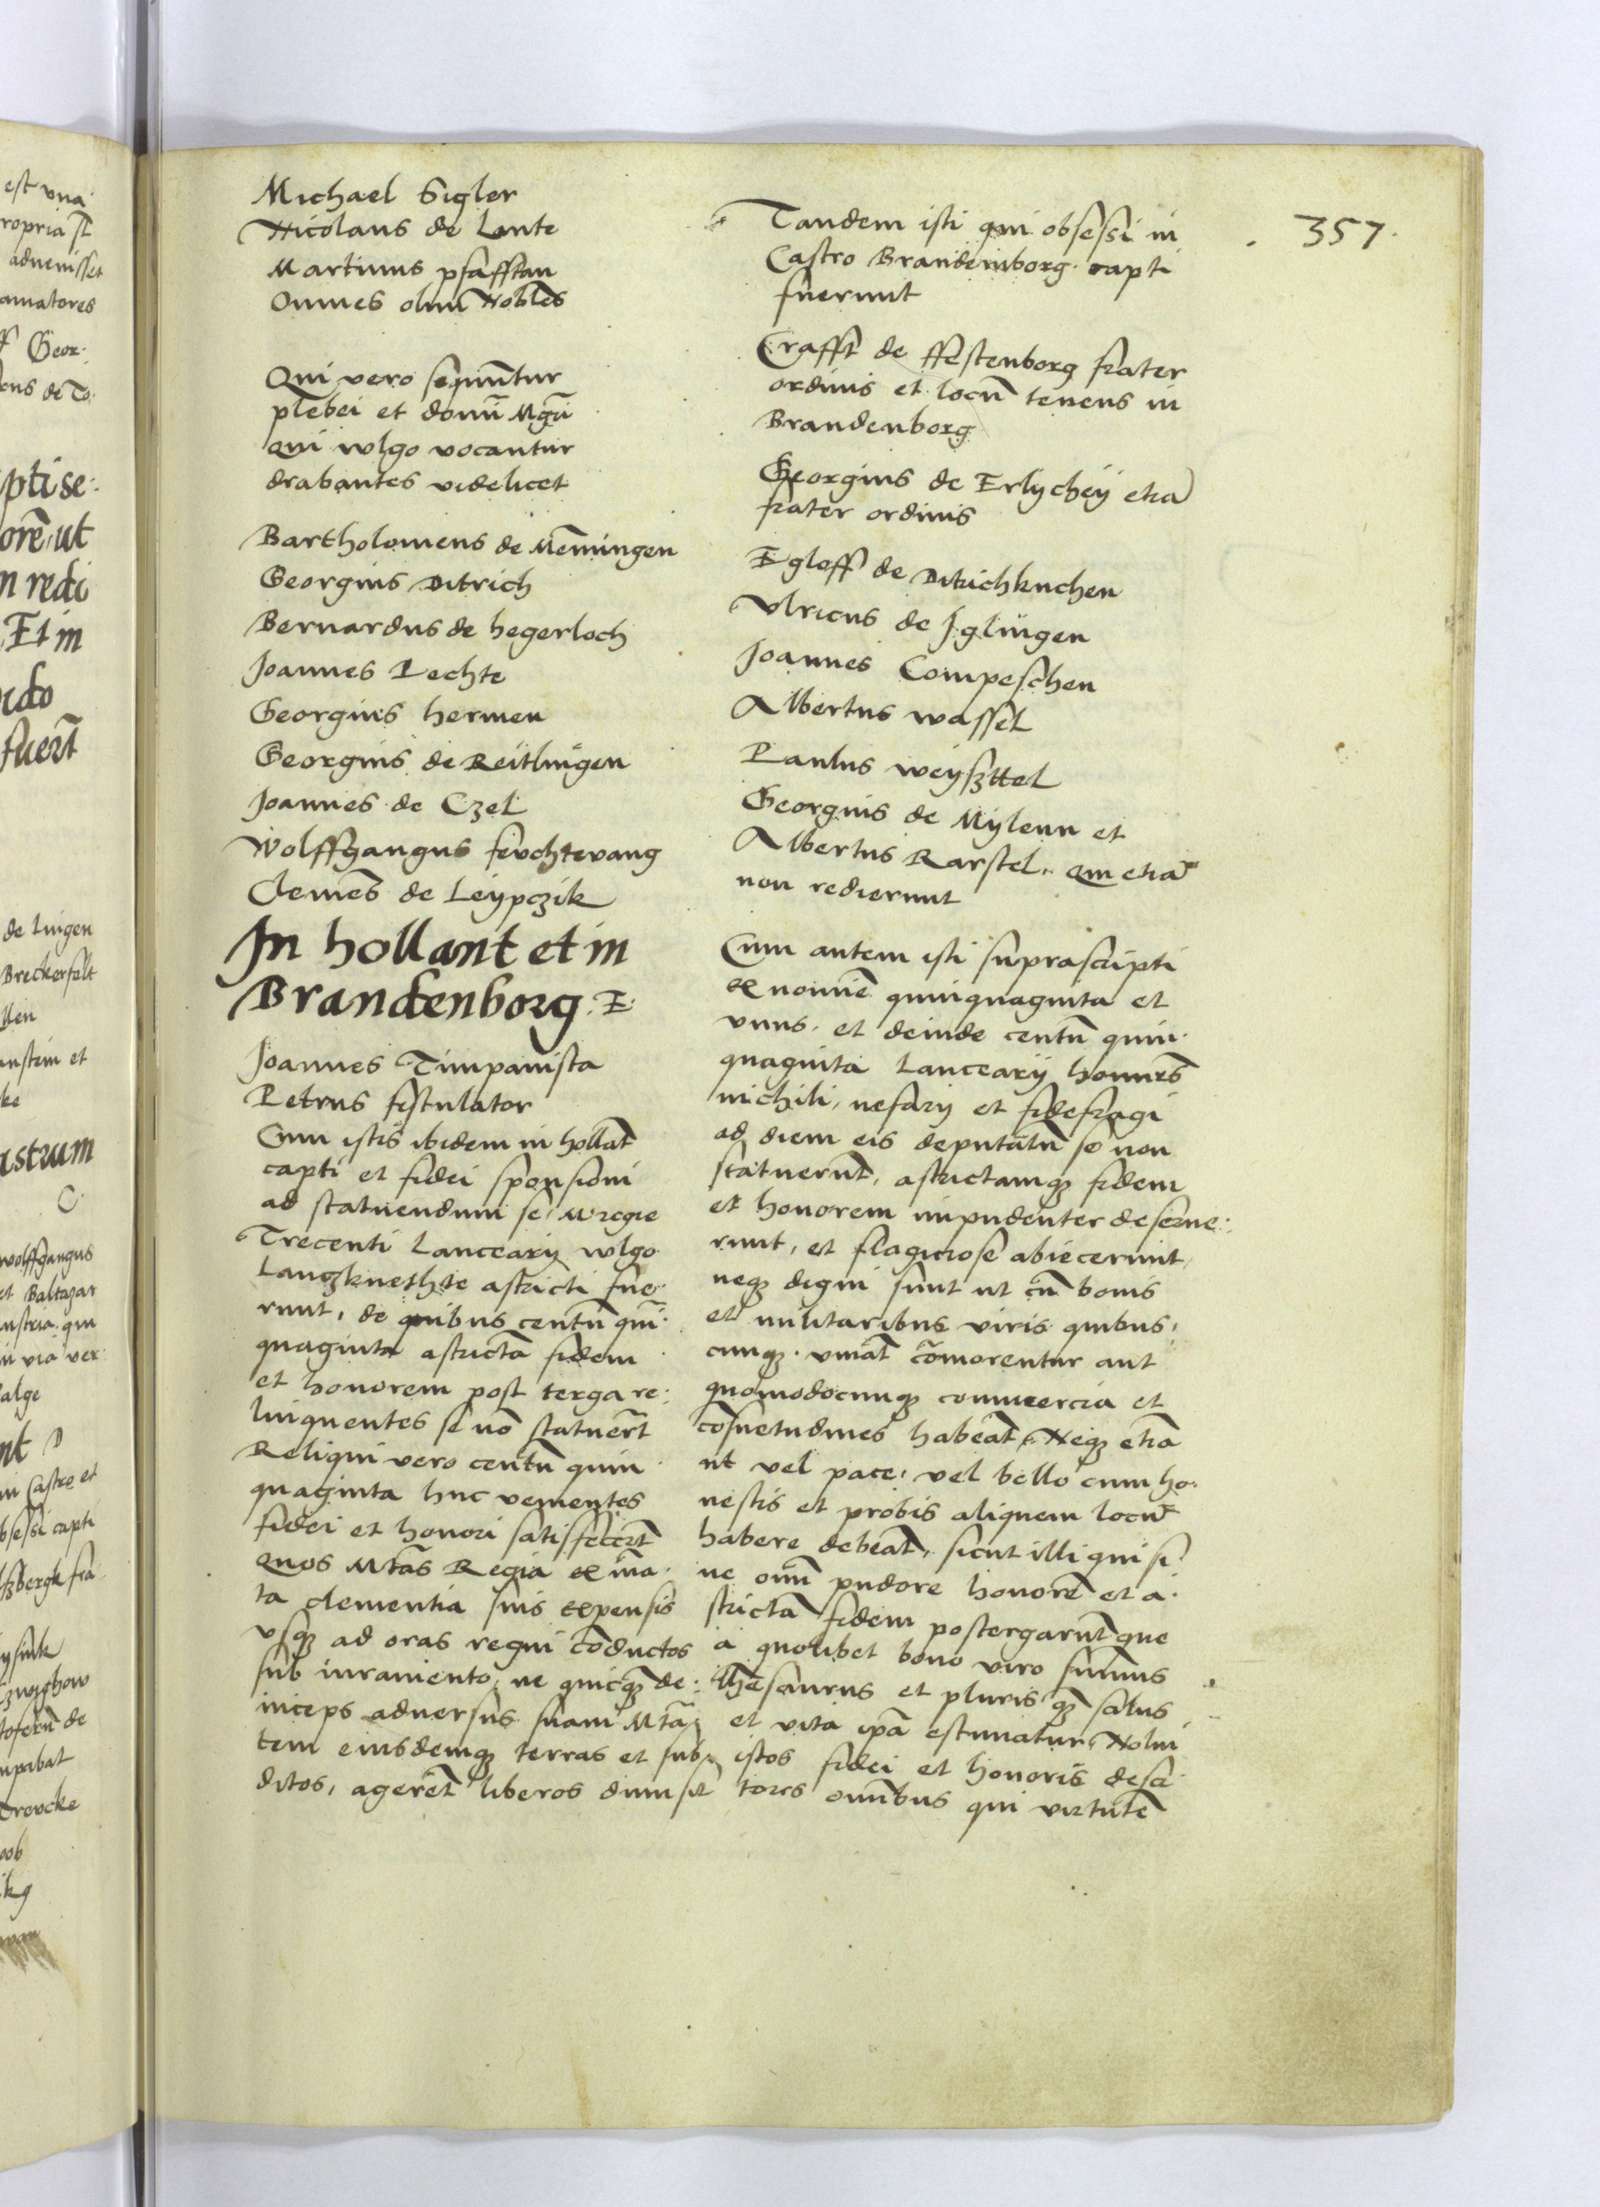 Michael Sigler
Nicolaus de Lonte
Martinus pfafftan
Omnes olim Nobles
Qui vero sequuntur
plebei et domi Mgri
qui wlgo vocantur
drabantes videlicet
Bartholomeus de Memingen
Georgius Ditrich
Bernardus de hegerloch
Joannes Lechte
Georgius hermen
Georgius de Reutlingen
Joannes de Czel
Wolffgangus feuchtevang
Clemes de Leypczik
In hollant et in
Brandenborg. E.
Joannes Timpanista
Petrus fistulator
Cum istis ibidem in hollat
capti et fidei sponsioni
ad statuendum se M regie
Trecenti Lanceary wlgo
Lanczknethte astricti fue
runt, de quibus centu qui
quaginta astricta fidem
et honorem post terga re:
linquentes se no statuert
Reliqui vero centu quin
quaginta huc venientes
fidei et honori satisfecert
quos Mtas Regia ex ina
ta clementia suis expensis
vsq ad oras regni coductos
sub iuramento, ne quicq de:
inceps adversus suam Mta
tem eiusdemq terras et sub
ditos, ageret liberos dimisit
357.
Tandem isti qui obsessi in
Castro Brandemborg capti
fuerunt
Crafft de ffestenborg frater
ordinis et locu tenens in
Brandenborg
Georgius de Erlychey etia
frater ordinis
Egloff de Ditrichkuchen
Vlricus de Iglingen
Joannes Compeschen
Albertus wassel
Paulus weyszttel
Georgius de Mylenn et
Albertus Rarstel, qui etia
non redierunt
Cum autem isti suprascripti
ex nomie quinquaginta et
vnus, et deinde centu quin
quaginta Lanceary homines
nichili, nefary et fidefragi
ad diem eis deputatu se non
statuerut, astrictamq fidem
et honorem impudenter deserue:
runt, et flagiciose abiecerunt
neq digni sunt ut cu bonis
et militaribus viris quibus,
cunq vivat comorentur aut
quomodocunq commercia et
cosuetudines habeat, Neq etia
ut vel pace, vel bello cum ho
nestis et probis aliquem locu
habere debeat, sicut illi qui si
ne omi pudore honore et a
stricta fidem postergarut que
a quolibet bono viro sumus
thesaurus et pluris q salus
et vita ipa estimatur, Nolui
istos fidei et honoris deser
tores omibus qui virtute